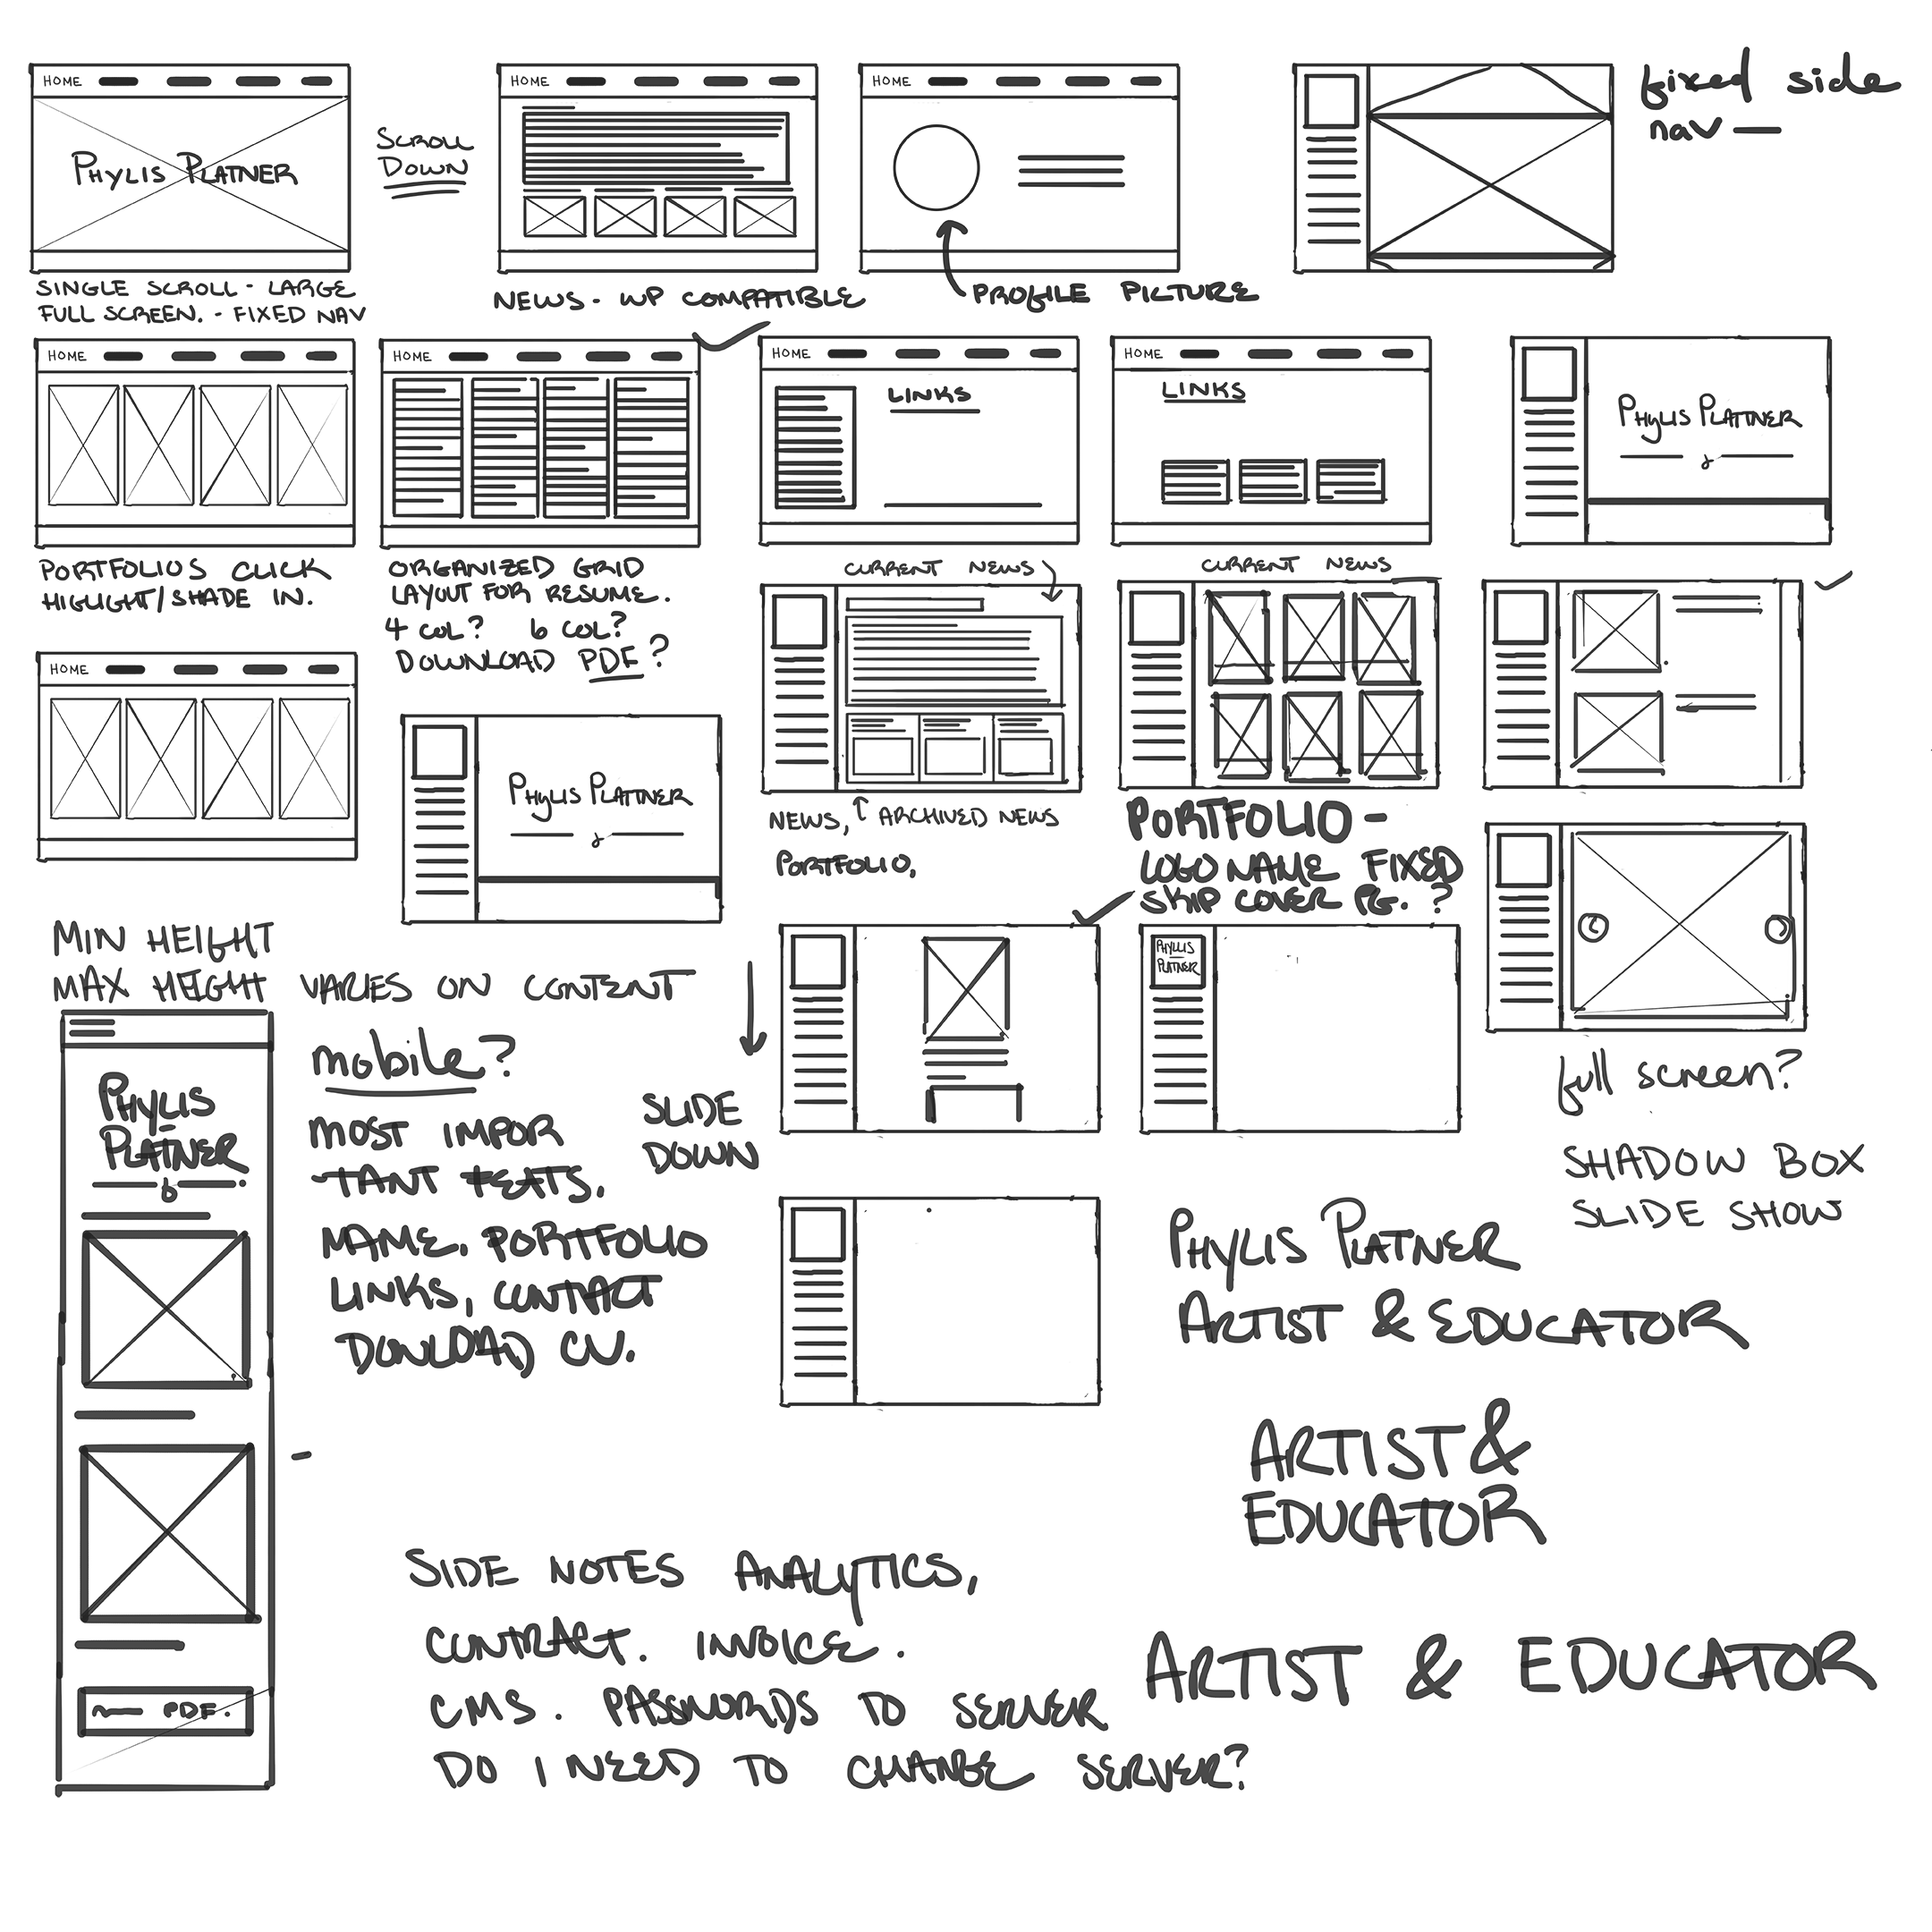 HOME
PHYLIS PLATNER
SINGLE SCROLL - LARGE
FULL SCREEN. - FIXED NAV
SCROLL
DOWN
HOME
NEWS - WP COMPATIBLE
HOME
PROFILE PICTURE
fixed side
nav —
HOME
PORTFOLIOS CLICK
HIGLIGHT/SHADE IN.
HOME
ORGANIZED GRID
LAYOUT FOR RESUME.
4 COL? 6 COL?
DOWNLOAD PDF?
HOME
LINKS
HOME
LINKS
PHYLIS PLATTNER
HOME
PHYLIS PLATTNER
CURRENT NEWS
NEWS, ARCHIVED NEWS
PORTFOLIO,
CURRENT NEWS
PORTFOLIO -
LOGO NAME FIXED
SKIP COVER PG. ?
MIN HEIGHT
MAX HEIGHT VARIES ON CONTENT
PHYLIS
PLATNER
PDF.
mobile?
MOST IMPOR
-TANT FEATS.
NAME. PORTFOLIO
LINKS, CONTACT
DOWLOAD CV.
SLIDE
DOWN
PHYLLIS
PLATNER
full screen?
SHADOW BOX
SLIDE SHOW
PHYLIS PLATNER
ARTIST & EDUCATOR
ARTIST &
EDUCATOR
ARTIST & EDUCATOR
SIDE NOTES ANALYTICS,
CONTRACT. INVOICE.
CMS. PASSWORDS TO SERVER
DO I NEED TO CHANGE SERVER?